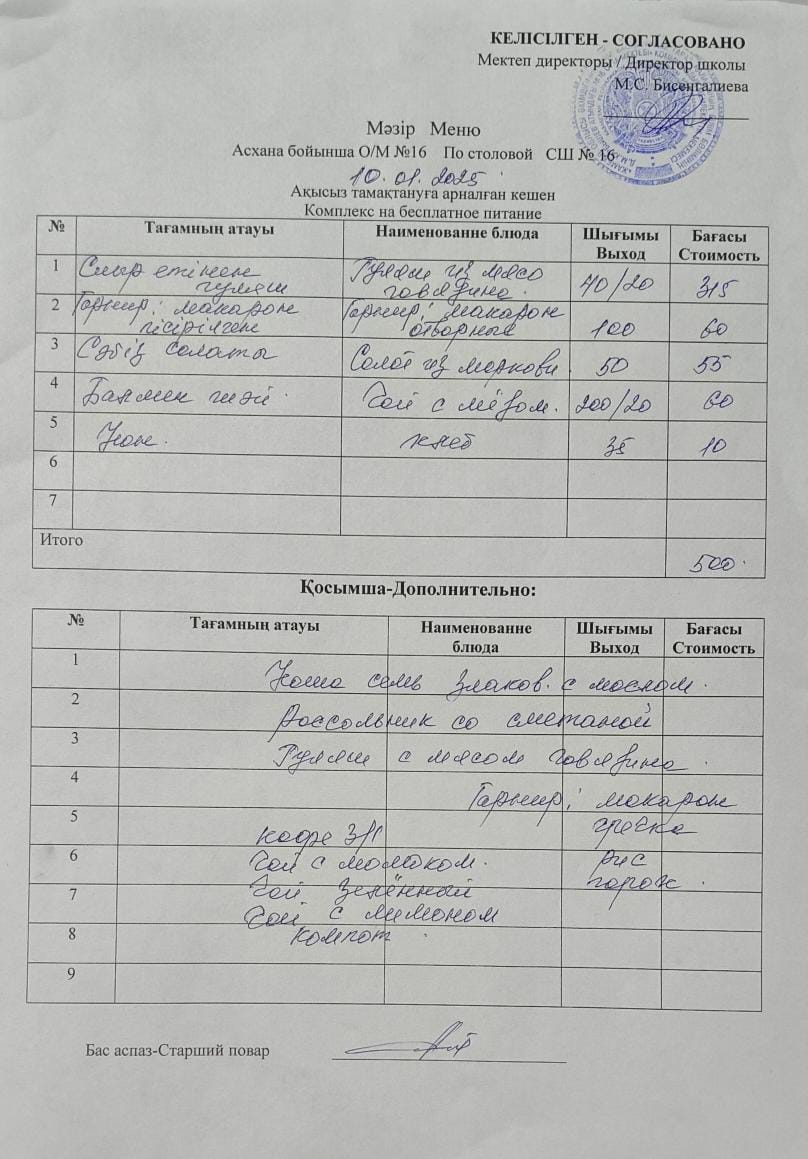 КЕЛІСІЛГЕН - СОГЛАСОВАНО
Мектеп директоры / Директор школы
М.С. Бисенгалиева
Мәзір Меню
Асхана бойынша О/М №16 По столовой СШ № 16
10.01.2025
Ақысыз тамақтануға арналған кешен
Комплекс на бесплатное питание
№ Тағамның атауы Наименование блюда Шығымы Выход Бағасы Стоимость
1 Сиыр етінен гуляш Гуляш из мясо говядина. 40/20 315
2 Гарнир: макарон пісірілген Гарнир: макарон отворные 100 60
3 Сәбіз салаты Салат из моркови 50 55
4 Балмен шәй. Чай с мёдом. 200/20 60
5 Нан. хлеб 35 10
6
7
Итого 500.
Қосымша-Дополнительно:
№ Тағамның атауы Наименование блюда Шығымы Выход Бағасы Стоимость
1 Каша семь злаков. с маслом.
2 Рассольник со сметаной
3 Гуляш с мясом говядина.
4 Гарнир: макарон
5 кофе 3/1 гречка
6 Чай с молоком. рис
7 Чай зелённый горох.
Чай с лимоном
8 компот.
9
Бас аспаз-Старший повар